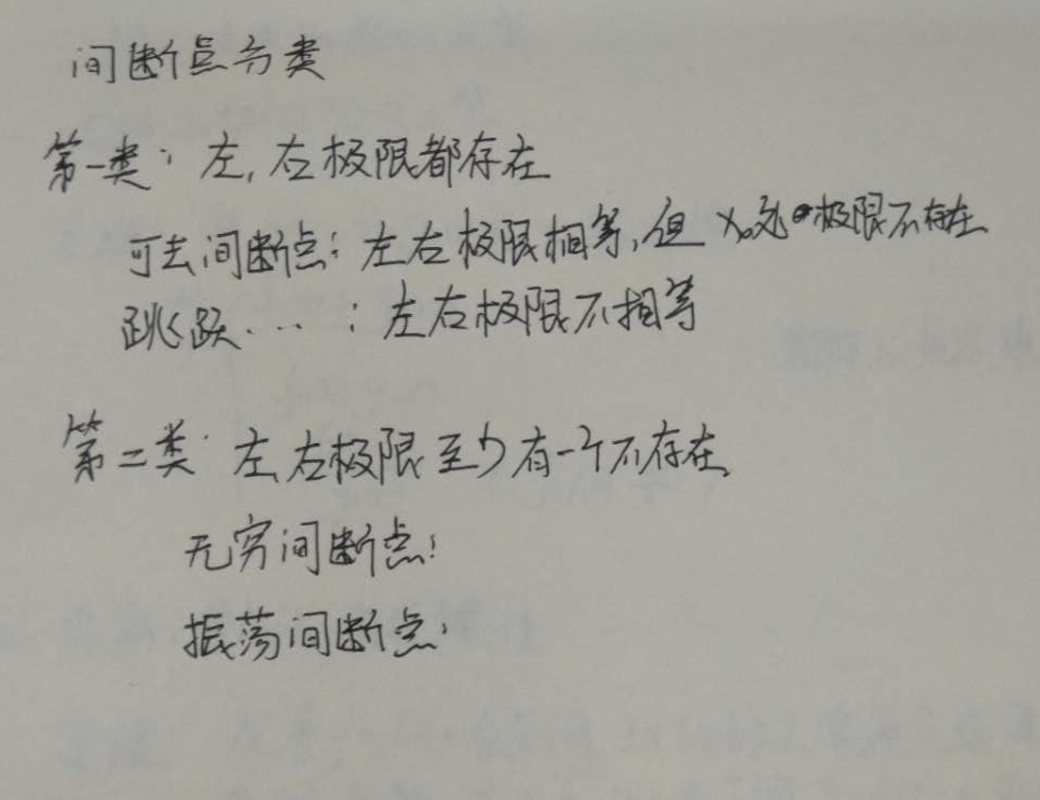 间断点分类
第一类: 左,右极限都存在
可去间断点: 左右极限相等,但 x₀处极限不存在
跳跃····: 左右极限不相等
第二类: 左,右极限至少有一个不存在
无穷间断点:
振荡间断点: